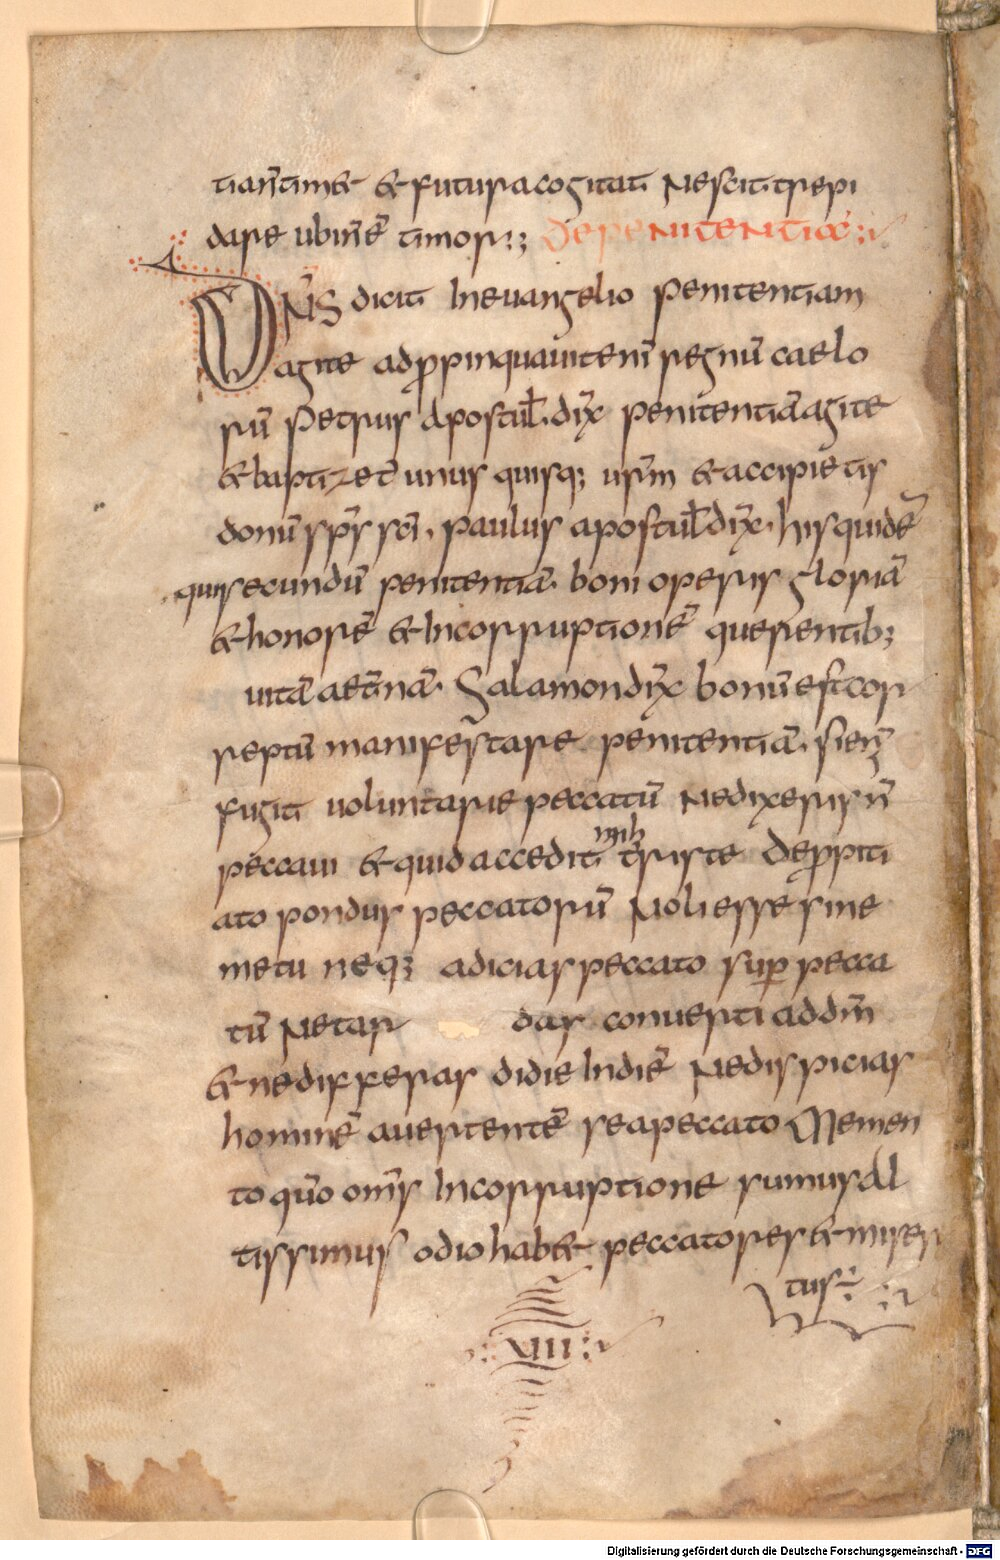 tiam̅ timet et futura cogitat Nescit trepi
dare ubi n̅ e̅ timor:; De penitentia:
DN̅S dicit In euangelio penitentiam
agite adpropinquauit eni̅ regnu̅ caelo
ru̅ Petrus apostul. dix̅ penitentia̅ agite
et baptizet̅ unus quisq; ur̅m et accipietis
donu̅ sp̅s sc̅i. paulus apostul̅ dix̅. his quide̅
qui secundu̅ penitentia̅. boni operis gloria̅
et honore̅ et Incorruptione̅ querentib;
uita̅ aet̅na̅. Salamon dix̅ bonu̅ est cor
reptu̅ manifestare penitentia̅. sic en̅
fugit uoluntarie peccatu̅ Ne dixeris n̅
peccaui et quid accedit mih triste De propiti
ato pondus peccatoru̅ Noli esse sine
metu neq; adicias peccato sup̲ pecca
tu̅ Ne tar das conuerti ad dm̅
et ne differas di die In die̅ Ne dispicias
homine̅ auertente̅ se a peccato Memen
to quo̅ om̅s In corruptione sumus Al
tissimus odio habet peccatores et miser
tus:
VIII
Digitalisierung gefördert durch die Deutsche Forschungsgemeinschaft - DFG